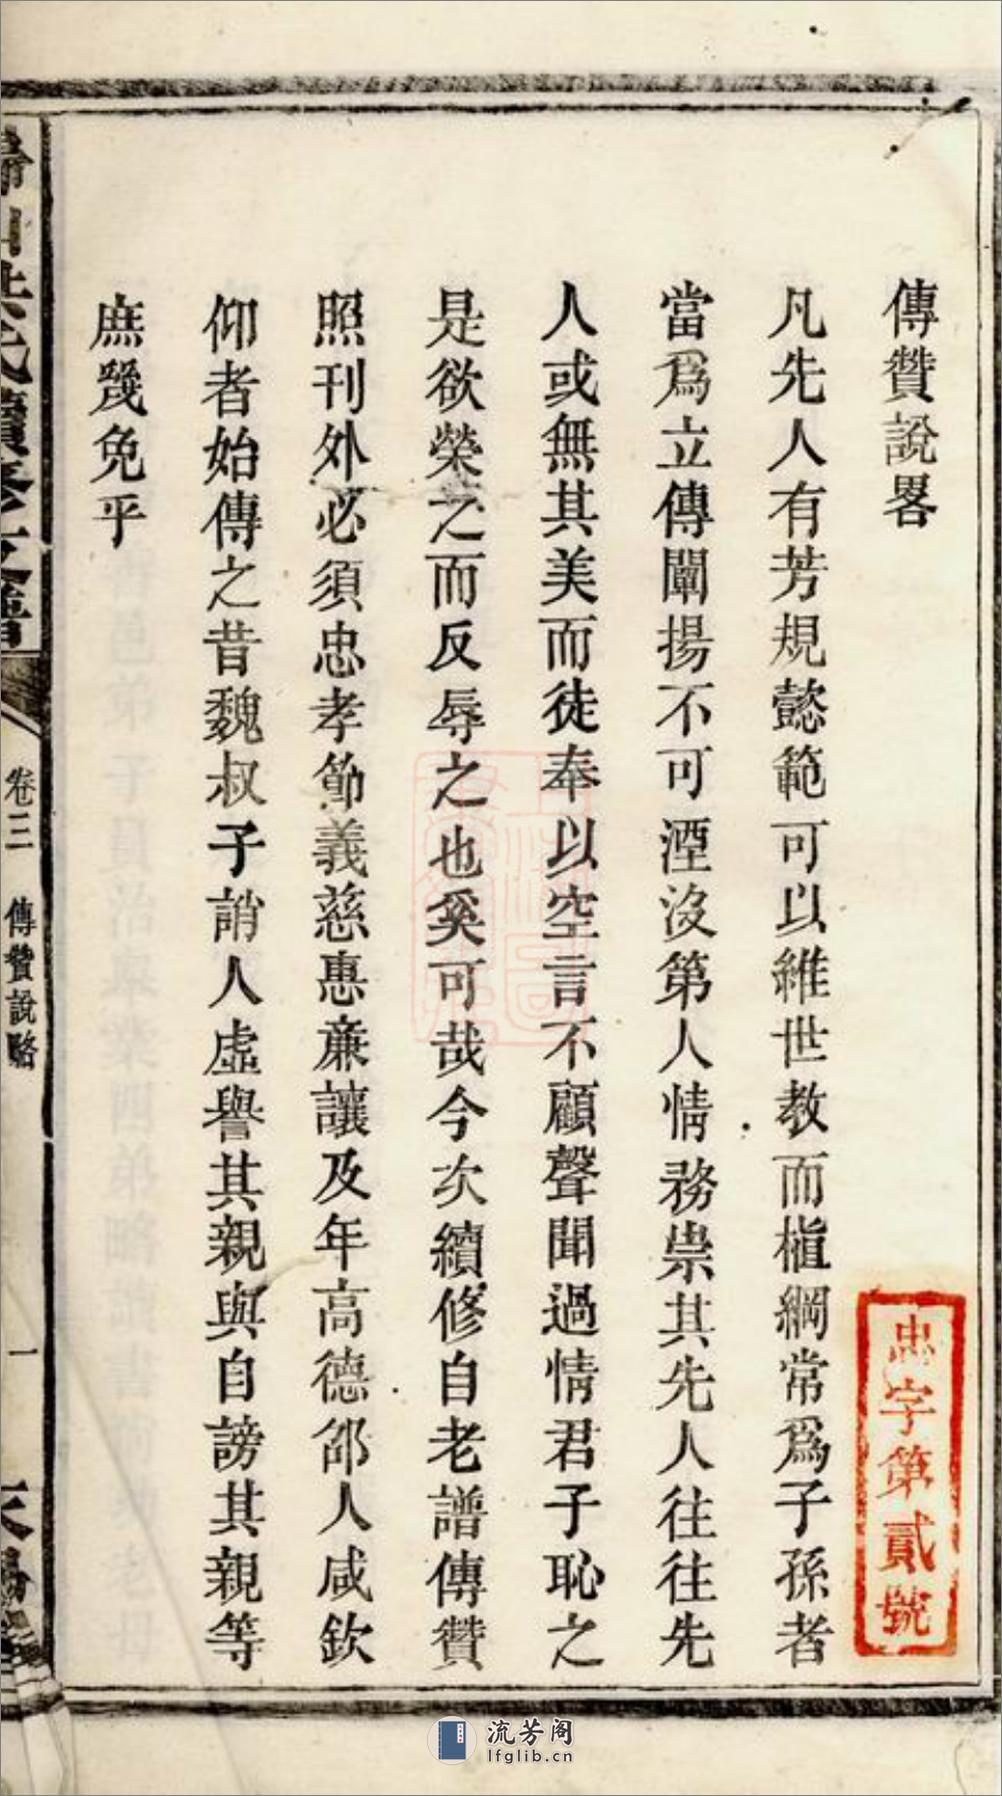 傳贊說畧
凡先人有芳規懿範可以維世教而植綱常爲子孫者
當爲立傳闡揚不可湮沒第人情務崇其先人往往先
人或無其美而徒奉以空言不顧聲聞過情君子恥之
是欲榮之而反辱之也奚可哉今次續修自老譜傳贊
照刊外必須忠孝節義慈惠亷讓及年高德邵人咸欽
仰者始傳之昔魏叔子誚人虛譽其親與自謗其親等
庶幾免乎
忠字第貳號
氏續修支譜
卷三
傳贊說略
一
流芳阁
lfglib.cn